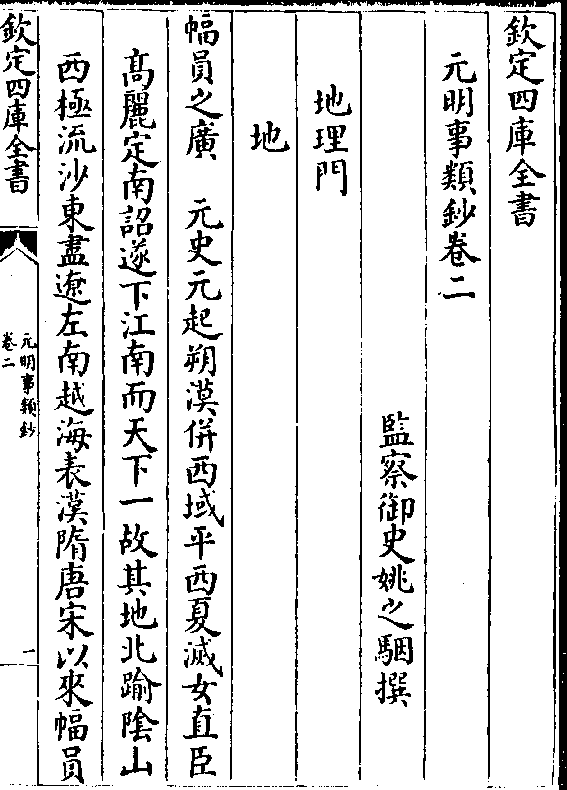 欽定四庫全書
元明事類鈔卷二
監察御史姚之駰撰
地理門
地
幅員之廣　元史元起朔漠併西域平西夏滅女直臣
高麗定南詔遂下江南而天下一故其地北踰陰山
西極流沙東盡遼左南越海表漢隋唐宋以來幅員
欽定四庫全書
元明事類鈔
卷二
一